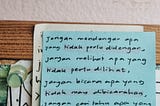 jangan mendengar apa
yang tidak perlu didengar,
jangan melihat apa yang
tidak perlu dilihat,
jangan bicara apa yang
tidak mau dibicarakan,
jangan cari tahu apa yang